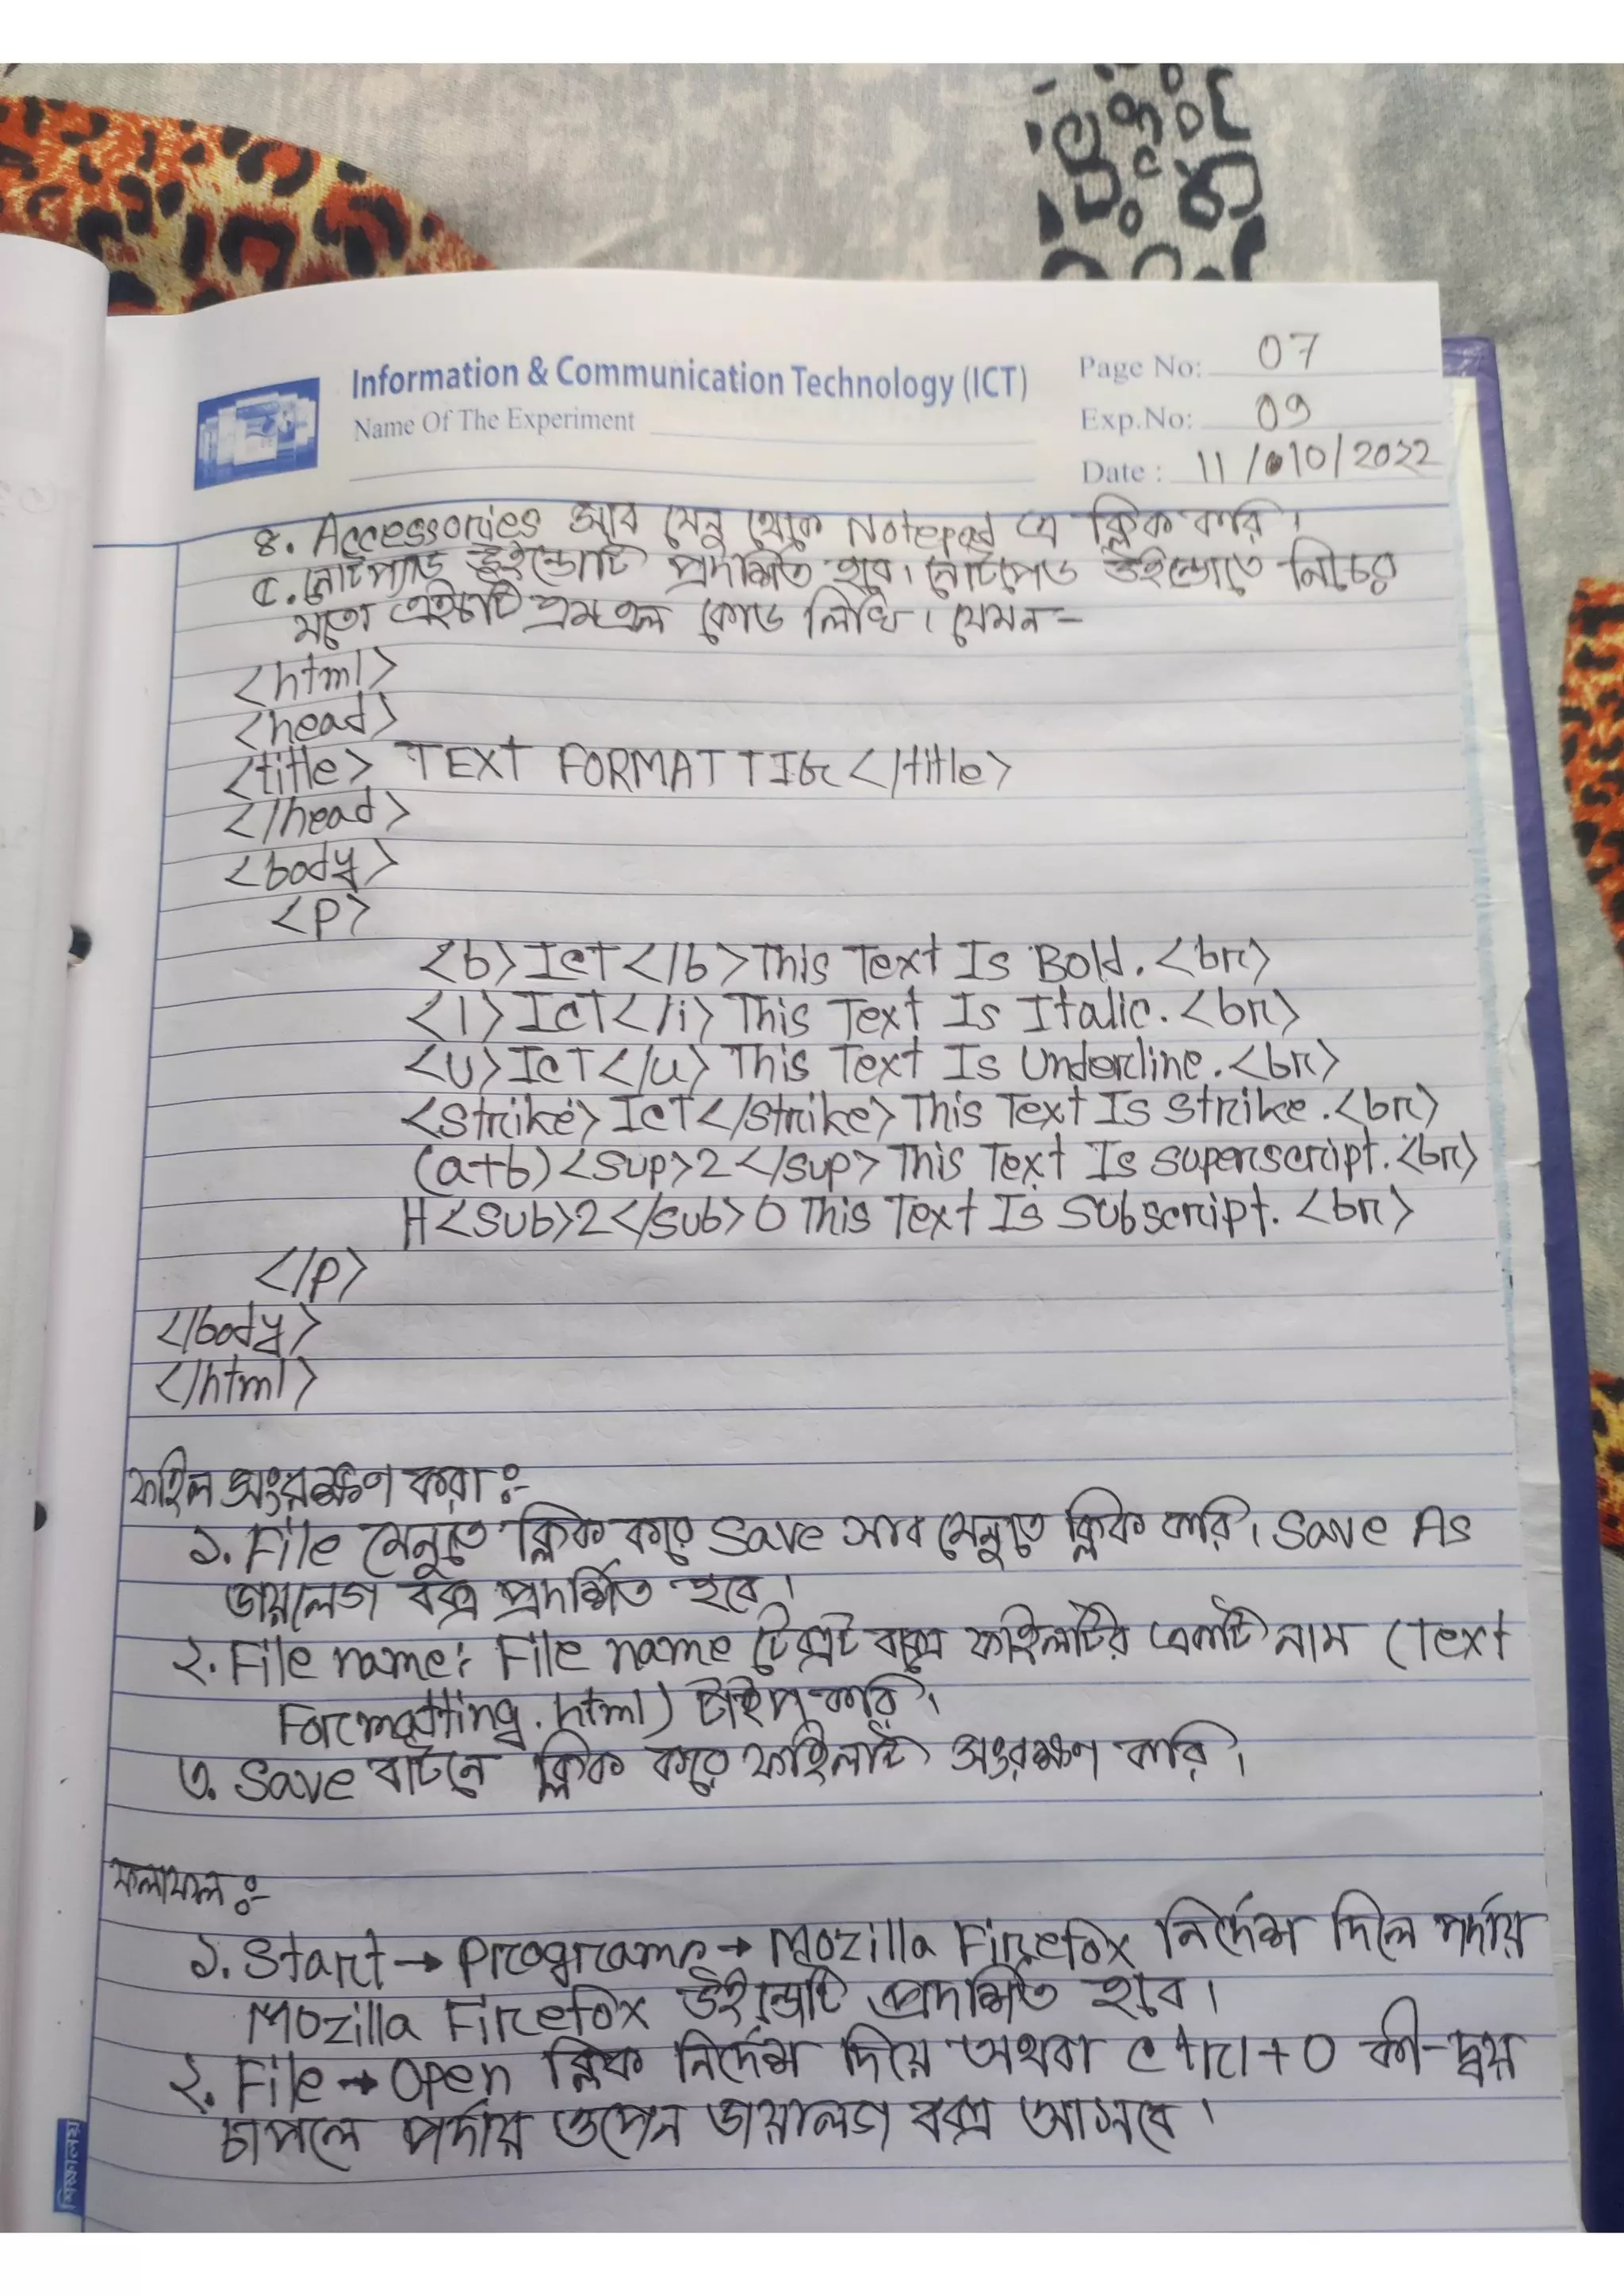 Information & Communication Technology (ICT)
Name Of The Experiment
Page No: 07
Exp.No: 09
Date : 11/10/2022
৪. Accessories সাব মেনু থেকে Notepad এ ক্লিক করি।
৫. নোটপ্যাড উইন্ডোটি প্রদর্শিত হবে। নোটপেড উইন্ডোতে নিচের
মতো এইচটি এমএল কোড লিখি। যেমন-
<html>
<head>
<title> TEXT FORMATTIG </title>
</head>
<body>
<p>
<b>ICT</b>This Text Is Bold.<br>
<i>ICT</i> This Text Is Italic.<br>
<u>ICT</u> This Text Is Underline.<br>
<strike>ICT</strike> This Text Is strike.<br>
(a+b)<sup>2</sup> This Text Is superscript.<br>
H<sub>2</sub>O This Text Is Subscript.<br>
</p>
</body>
</html>
ফাইল সংরক্ষণ করা :-
১. File মেনুতে ক্লিক করে Save সাব মেনুতে ক্লিক করি। Save As
ডায়লেগ বক্স প্রদর্শিত হবে।
২. File name: File name টেক্সট বক্সে ফাইলটির একটি নাম (Text
Formatting.html) টাইপ করি।
৩. Save বাটনে ক্লিক করে ফাইলটি সংরক্ষণ করি।
ফলাফল :-
১. Start → Programs → Mozilla Firefox নির্দেশ দিলে পর্দায়
Mozilla Firefox উইন্ডোটি প্রদর্শিত হবে।
২. File → Open ক্লিক নির্দেশ দিয়ে অথবা ctrl+O কী-দ্বয়
চাপলে পর্দায় ওপেন ডায়ালগ বক্স আসবে।
শিক্ষালয়